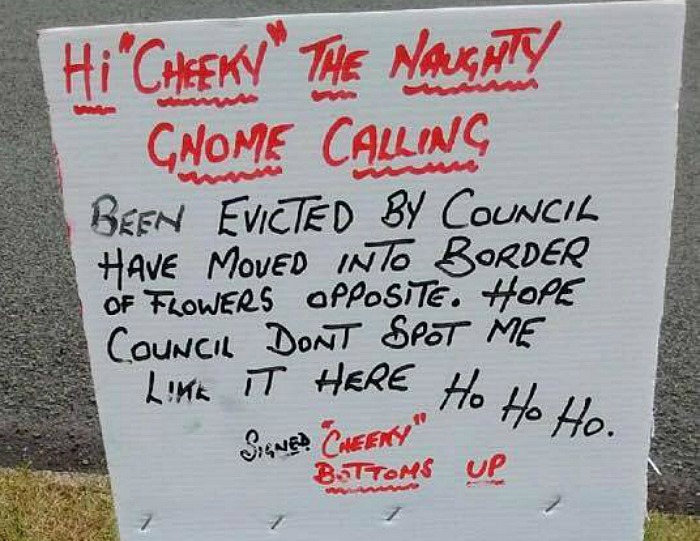 Hi "CHEEKY" THE NAUGHTY
GNOME CALLING
BEEN EVICTED BY COUNCIL
HAVE MOVED INTO BORDER
OF FLOWERS OPPOSITE. HOPE
COUNCIL DONT SPOT ME
LIKE IT HERE HO HO HO.
SIGNED "CHEEKY"
BOTTOMS UP